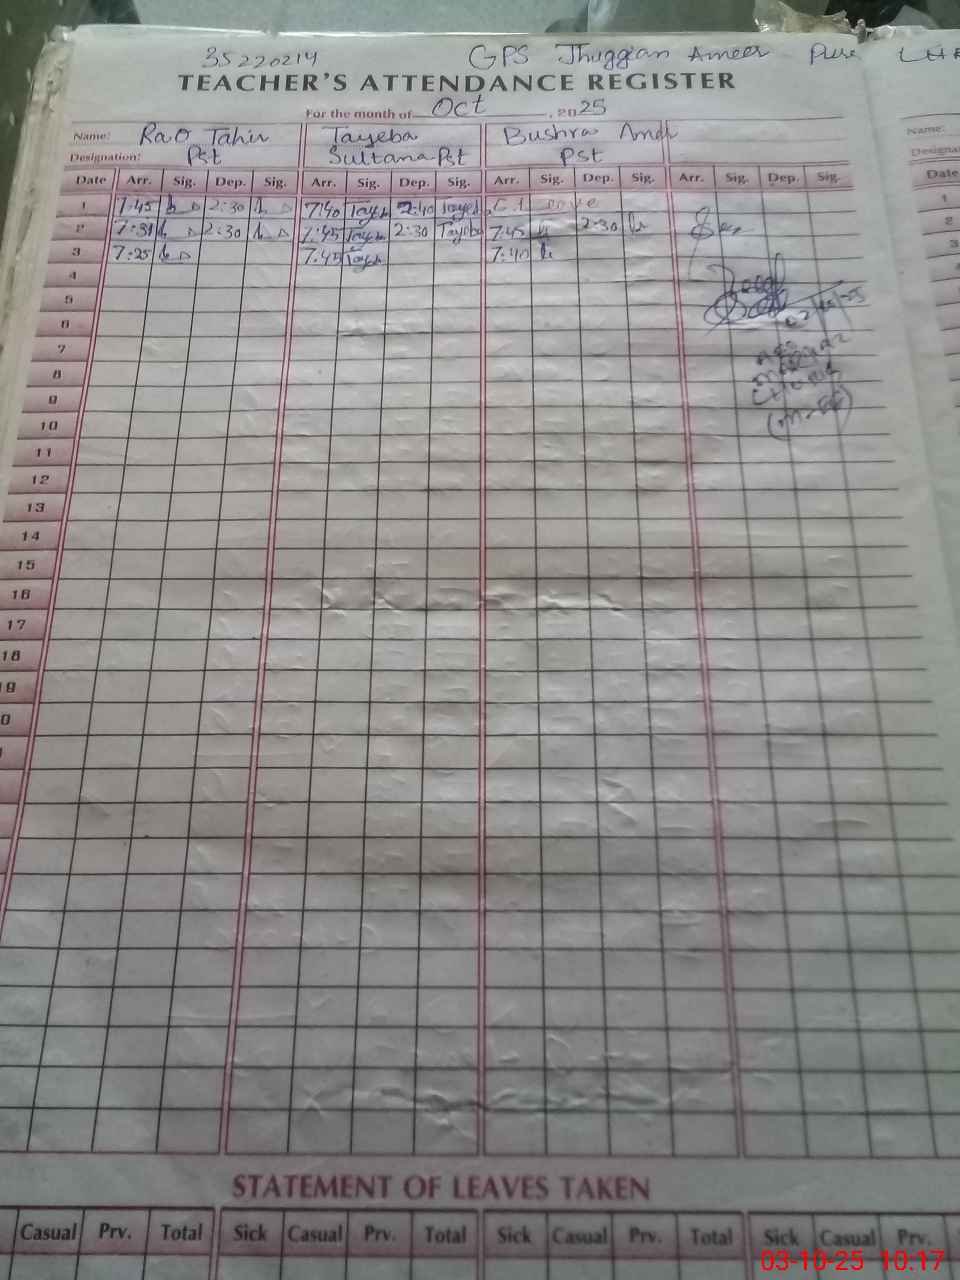 35220214 GPS Jhuggian Ameer Pura LHR
TEACHER'S ATTENDANCE REGISTER
For the month of Oct, 2025
Name: Rao Tahir Tayeba Bushra Name:
Designation: Pst Sultana Pst Pst
Date Arr. Sig. Dep. Sig. Arr. Sig. Dep. Sig. Arr. Sig. Dep. Sig. Arr. Sig. Dep. Sig. Date
1 7:45 2:30 7:40 Tayeb 2:40 Tayeb 1
2 7:31 2:30 7:45 Tayeb 2:30 Tayeba 7:45 2:30 2
3 7:25 7:45 Tayeb 7:40 3
4
5
6
7
8
9
10
11
12
13
14
15
16
17
18
19
STATEMENT OF LEAVES TAKEN
Casual Prv. Total Sick Casual Prv. Total Sick Casual Prv. Total Sick Casual Prv.
03-10-25 10:17